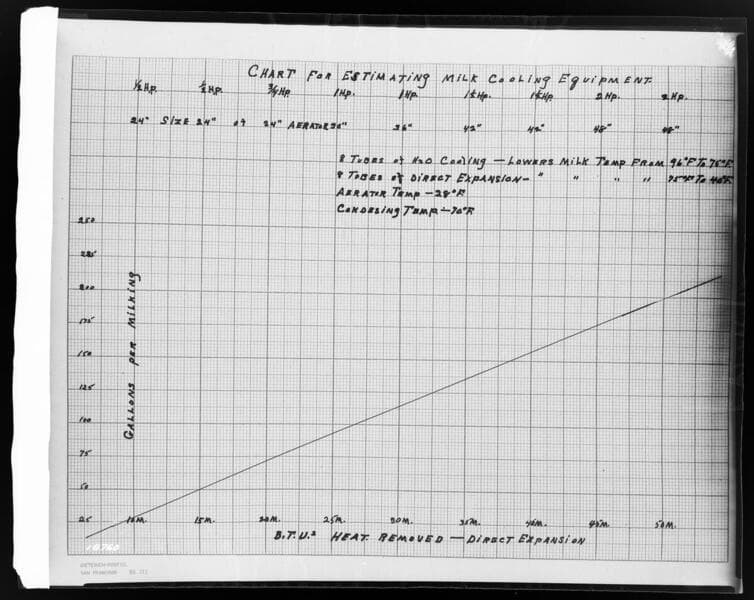 CHART FOR ESTIMATING MILK COOLING EQUIPMENT.
½ HP. ½ HP. ¾ HP 1 HP. 1 HP. 1½ HP. 1½ HP. 2 HP. 2 HP.
24" SIZE 24" of 24" AERATOR 36" 36" 42" 42" 48" 48"
8 TUBES of H2O COOLING — LOWERS MILK TEMP FROM 96°F TO 75°F.
8 TUBES of DIRECT EXPANSION — " " " " 75°F TO 40°F.
AERATOR TEMP — 28°F.
CONDESING TEMP — 70°F
250
225
200
175
150
125
100
75
50
25
GALLONS PER MILKING
10M. 15M. 20M. 25M. 30M. 35M. 40M. 45M. 50M.
B.T.U.s HEAT REMOVED — DIRECT EXPANSION
16760
DIETERICH-POST CO.
SAN FRANCISCO